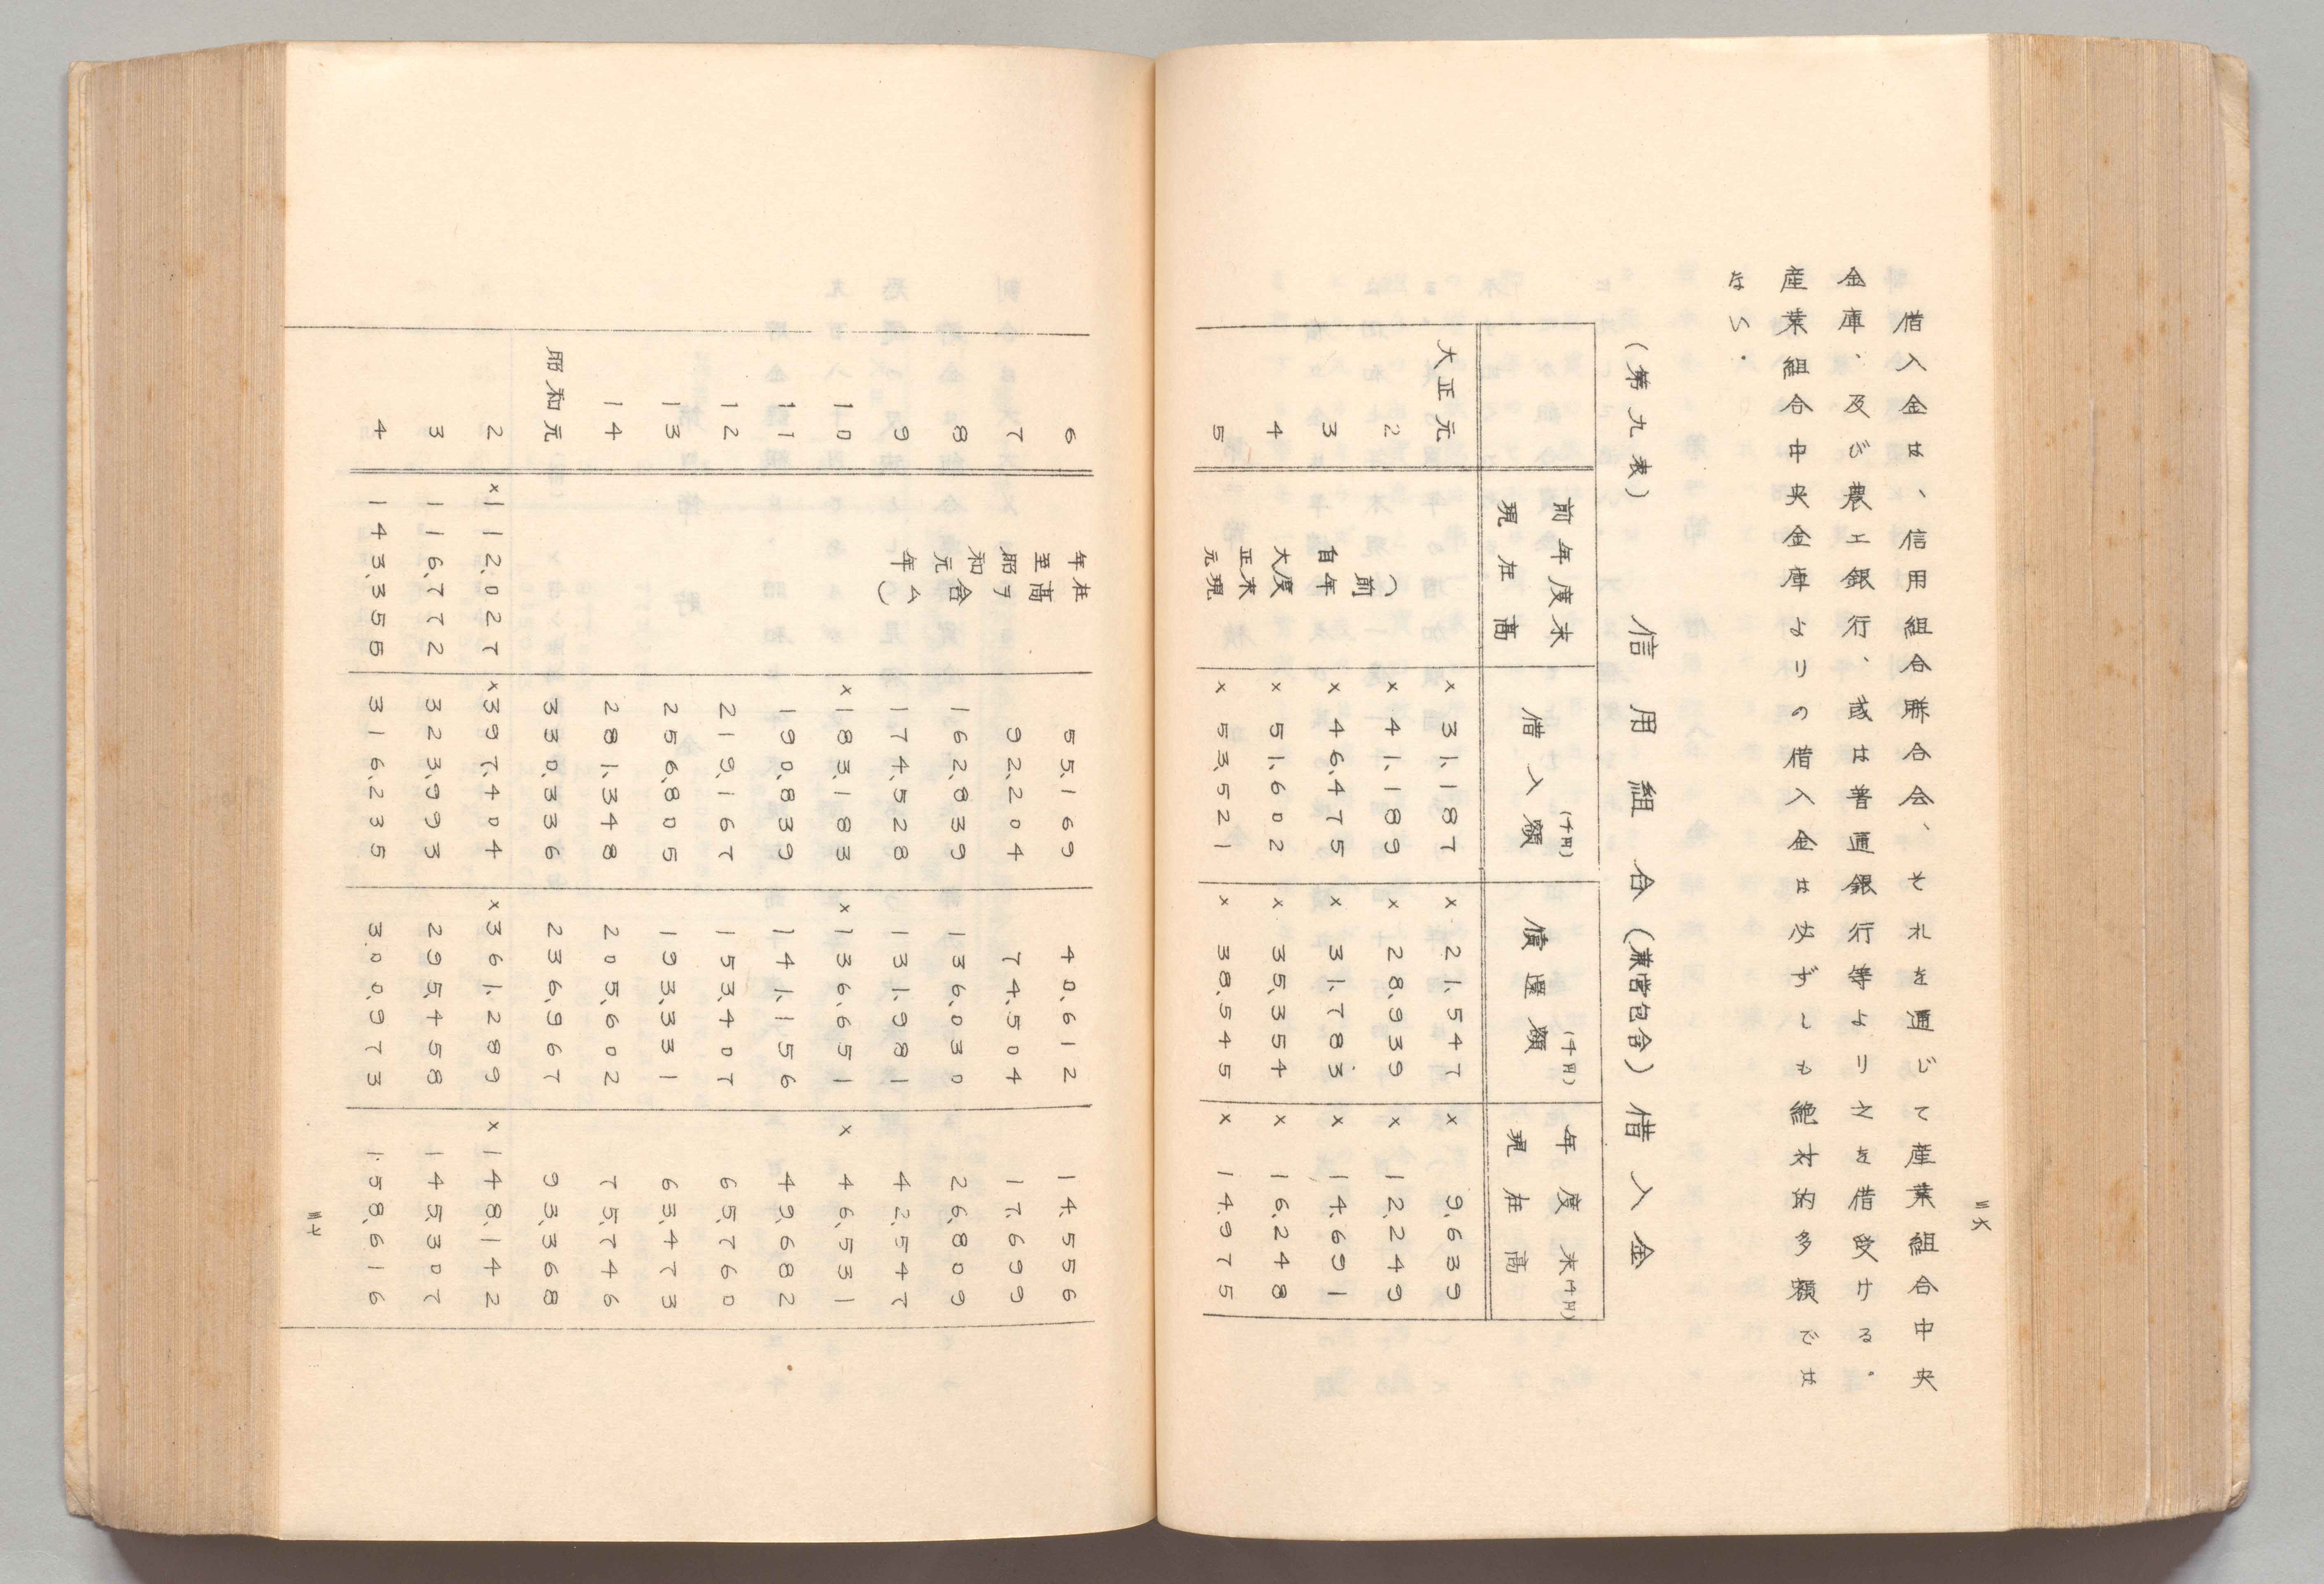 借入金は、信用組合聯合会、それを通じて産業組合中央
金庫、及び農工銀行、或は普通銀行等より之を借受ける。
産業組合中央金庫よりの借入金は必ずしも絶対的多額では
ない.
三六
(第九表) 信用組合(兼営包含)借入金
前年度末現在高 借入額(千円) 償還額(千円) 年度末現在高(千円)
大正元 × 31,187 × 21,547 × 9,639
2 × 41,189 × 28,939 × 12,249
3 × 46,475 × 31,783 × 14,691
4 × 51,602 × 35,354 × 16,248
5 × 53,521 × 38,545 × 14,975
(自大正元年至昭和元年
前年度末現在高ヲ含ム)
6 55,169 40,612 14,556
7 92,204 74,504 17,699
8 162,839 136,030 26,809
9 174,528 131,981 42,547
10 ×183,183 ×136,651 × 46,531
11 190,839 141,156 49,682
12 219,167 153,407 65,760
13 256,805 193,331 63,473
14 281,348 205,602 75,746
昭和元 330,336 236,967 93,368
2 ×112,027 ×397,404 ×361,289 ×148,142
3 116,772 323,993 295,458 145,307
4 143,355 316,235 300,973 158,616
三七